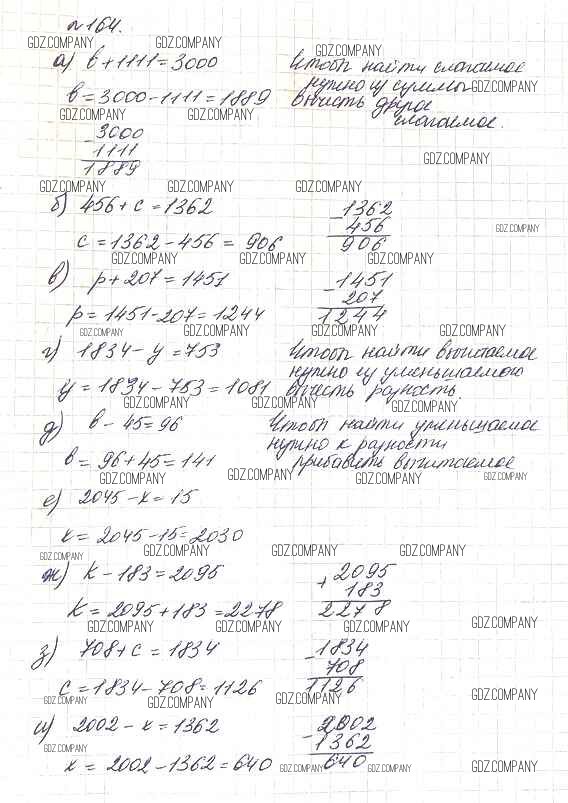 №164.
GDZ.COMPANY GDZ.COMPANY GDZ.COMPANY
а) b+1111=3000 Чтобы найти слагаемое
нужно из суммы GDZ.COMPANY
b=3000-1111=1889 вычесть другое
GDZ.COMPANY GDZ.COMPANY слагаемое.
- 3000
1111
1889
GDZ.COMPANY
GDZ.COMPANY GDZ.COMPANY GDZ.COMPANY
б) 456+c=1362 - 1362
456 GDZ.COMPANY
c=1362-456=906 906
GDZ.COMPANY GDZ.COMPANY GDZ.COMPANY
в) p+207=1451 - 1451
207
p=1451-207=1244 1244
GDZ.COMPANY GDZ.COMPANY GDZ.COMPANY GDZ.COMPANY
г) 1834-y=753 Чтобы найти вычитаемое
нужно из уменьшаемого
y=1834-753=1081 вычесть разность.
GDZ.COMPANY GDZ.COMPANY GDZ.COMPANY
д) b-45=96 Чтобы найти уменьшаемое
нужно к разности
b=96+45=141 прибавить вычитаемое
GDZ.COMPANY GDZ.COMPANY GDZ.COMPANY GDZ.COMPANY
е) 2045-x=15
x=2045-15=2030
GDZ.COMPANY GDZ.COMPANY GDZ.COMPANY GDZ.COMPANY
ж) k-183=2095 + 2095
183
k=2095+183=2278 2278
GDZ.COMPANY GDZ.COMPANY GDZ.COMPANY GDZ.COMPANY
з) 708+c=1834 - 1834
708
c=1834-708=1126 1126
GDZ.COMPANY GDZ.COMPANY GDZ.COMPANY GDZ.COMPANY
и) 2002-x=1362 - 2002
GDZ.COMPANY 1362
x=2002-1362=640 GDZ.COMPANY 640 GDZ.COMPANY GDZ.COMPANY